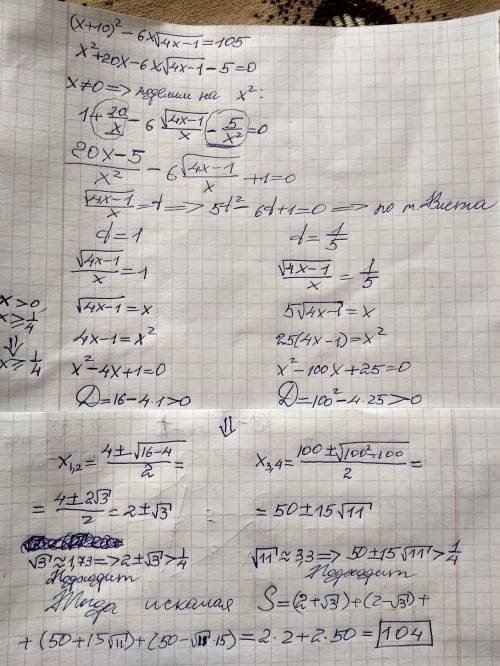 (x+10)² − 6x√(4x−1) = 105
x² + 20x − 6x√(4x−1) − 5 = 0
x ≠ 0 => поделим на x²:
1 + 20/x − 6 √(4x−1)/x − 5/x² = 0
(20x−5)/x² − 6 √(4x−1)/x + 1 = 0
√(4x−1)/x = t => 5t² − 6t + 1 = 0 => по т. Виета
t = 1
√(4x−1)/x = 1
√(4x−1) = x
4x−1 = x²
x² − 4x + 1 = 0
D = 16 − 4·1 > 0
t = 1/5
√(4x−1)/x = 1/5
5√(4x−1) = x
25(4x−1) = x²
x² − 100x + 25 = 0
D = 100² − 4·25 > 0
x > 0
x ≥ 1/4
⇓
x ≥ 1/4
⇓
x₁,₂ = (4 ± √(16−4))/2 =
= (4 ± 2√3)/2 = 2 ± √3
√3 ≈ 1,73 => 2 ± √3 > 1/4
Подходит
x₃,₄ = (100 ± √(100²−100))/2 =
= 50 ± 15√11
√11 ≈ 3,3 => 50 ± 15√11 > 1/4
Подходит
Тогда искомая S = (2+√3) + (2−√3) +
+ (50+15√11) + (50−√11·15) = 2·2 + 2·50 = 104